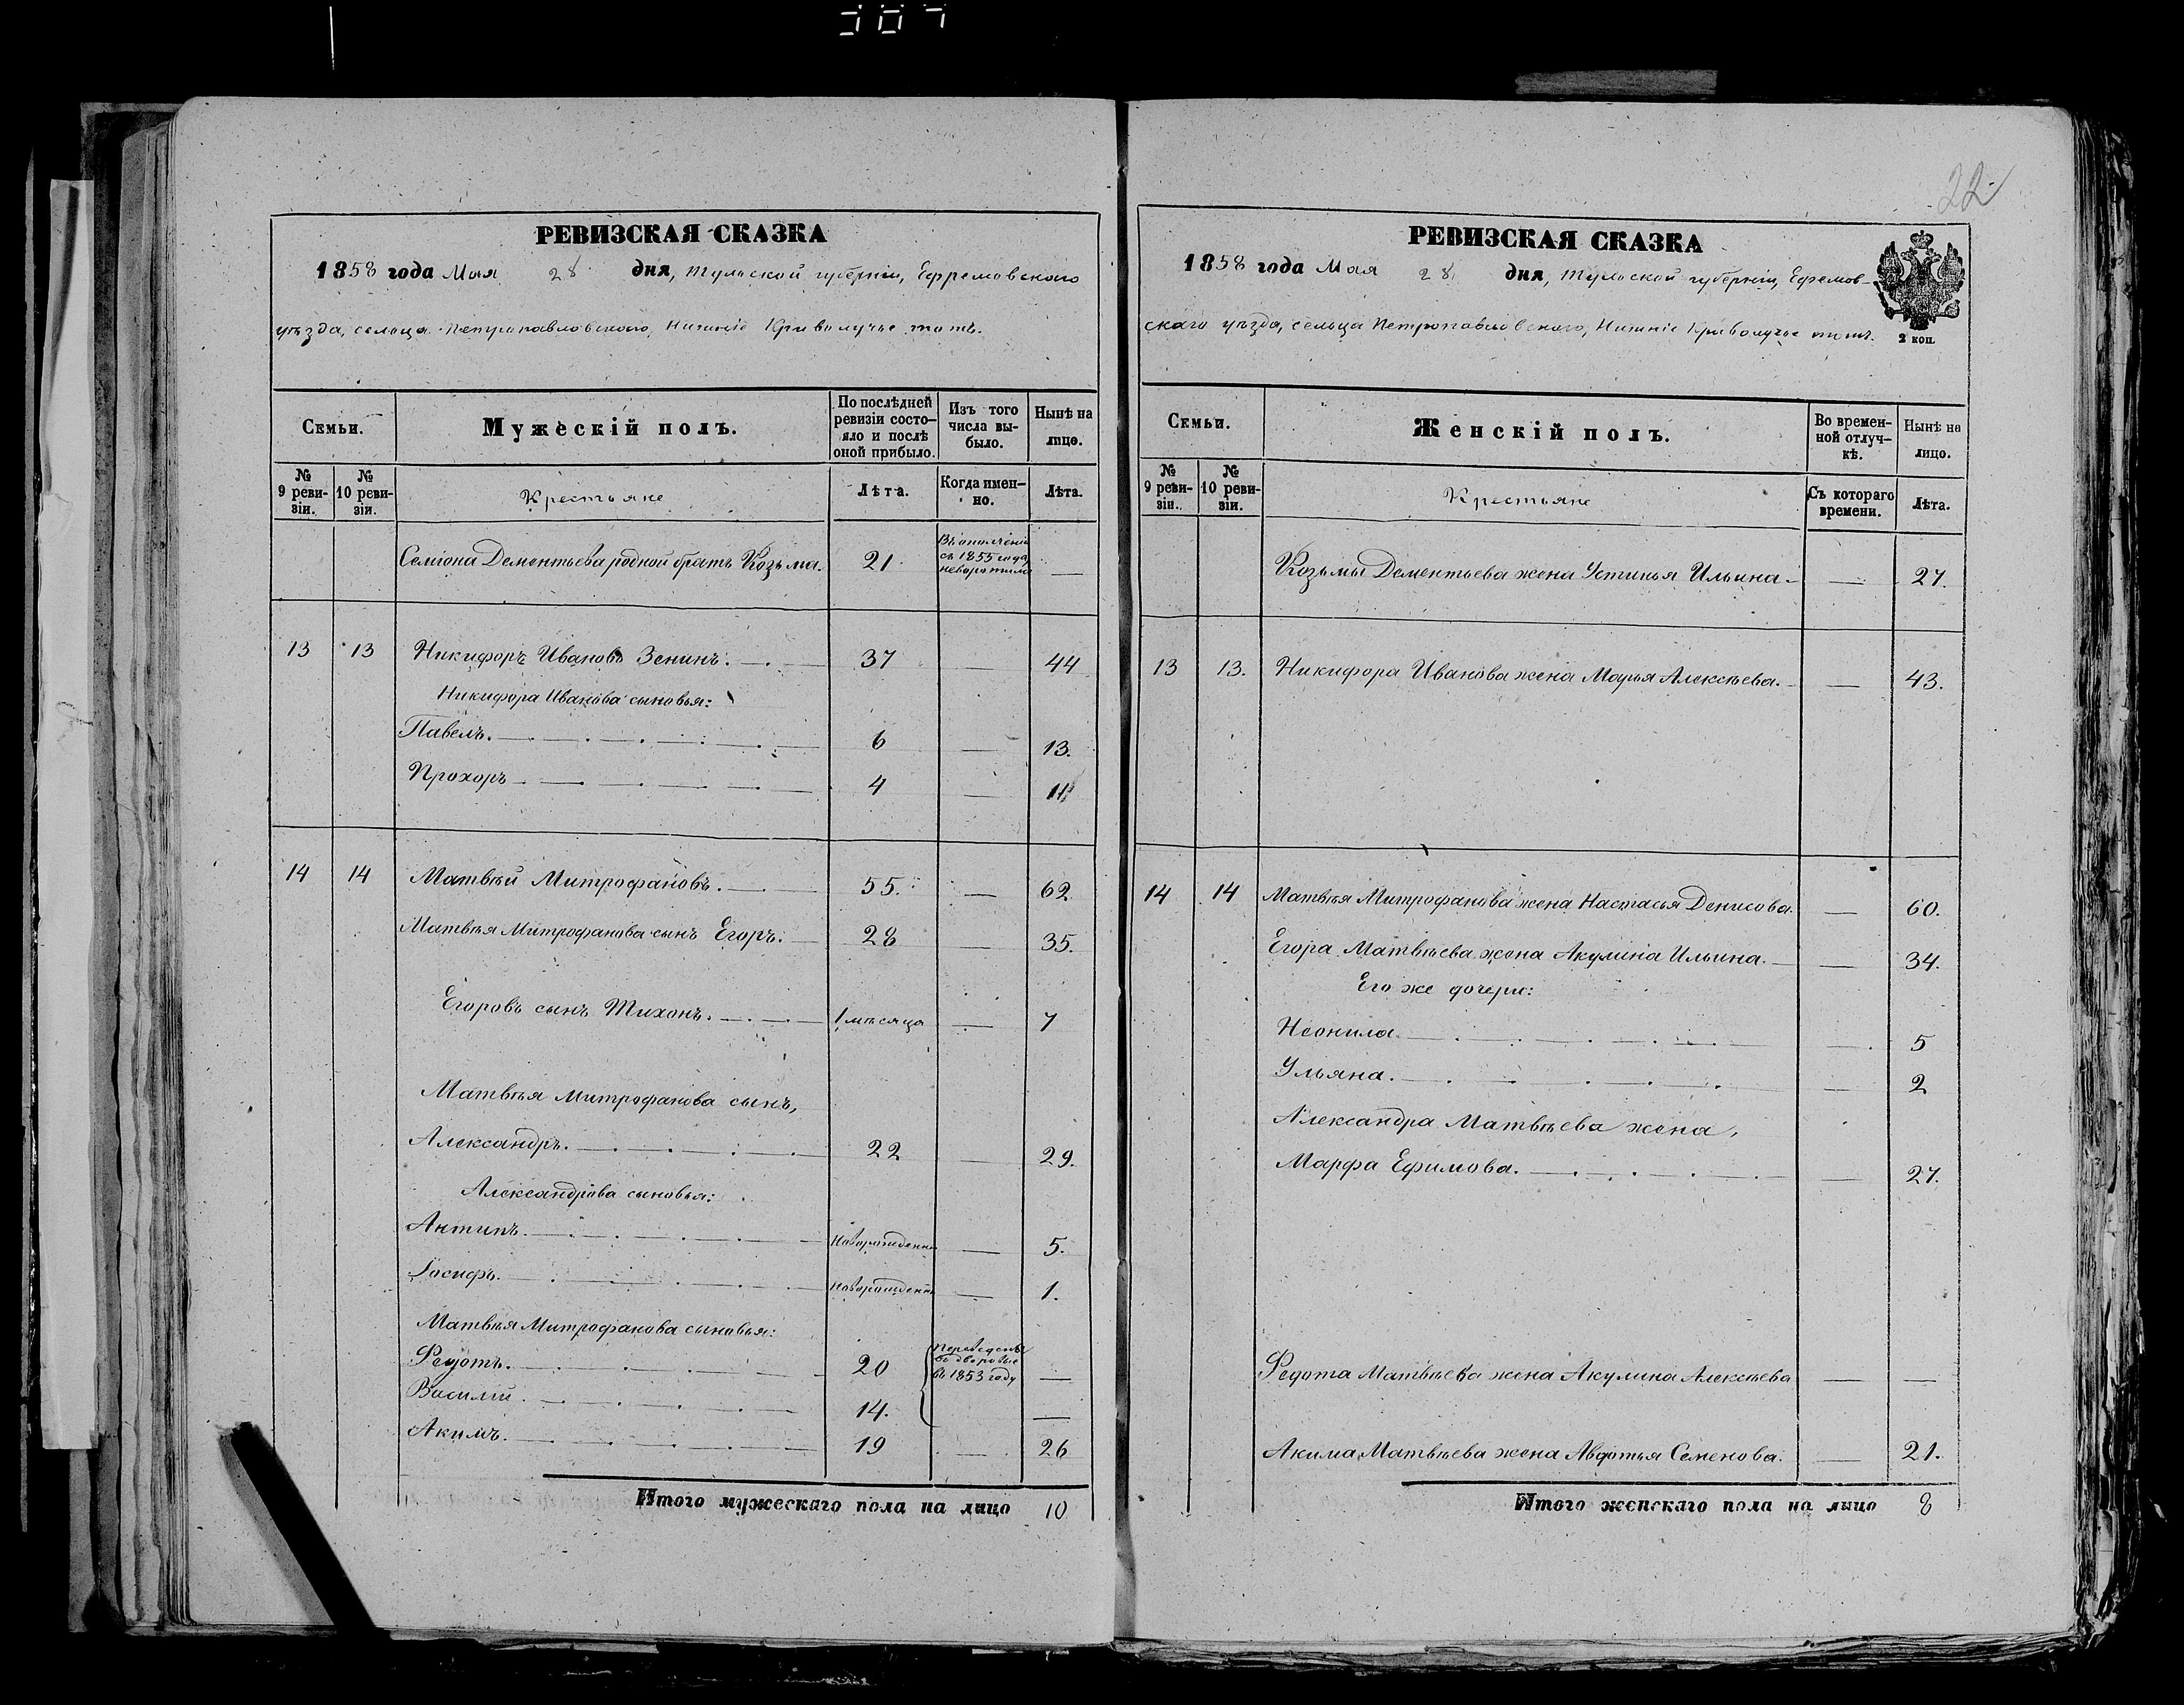 22
РЕВИЗСКАЯ СКАЗКА
1858 года Мая 28 дня, Тульской губерніи, Ефремовского
уѣзда, сельца Петропавловского, Нижніе Криволучье тожъ.
Семьи.
Мужескій полъ.
По послѣдней ревизіи состо-
яло и послѣ оной прибыло.
Изъ того числа вы-
было.
Нынѣ на лицо.
№ 9 реви-
зіи.
№ 10 реви-
зіи.
Крестьяне
Лѣта.
Когда имен-
но.
Лѣта.
Семіона Дементьева родной братъ Козьма. 21
Въ ополченіи
съ 1855 года
—
13 13 Никифоръ Ивановъ Зенинъ. — 37 — 44
Никифора Иванова сыновья:
Павелъ. — 6 — 13.
Прохоръ — 4 — 11
14 14 Матвѣй Митрофановъ. — 55. — 62
Матвѣя Митрофанова сынъ Егоръ. — 28 — 35.
Егоровъ сынъ Тихонъ. — 1 мѣсяца — 7
Матвѣя Митрофанова сынъ,
Александръ. — 22 — 29.
Александрова сыновья:
Антипъ. — — 5.
Іосифъ. — — 1.
Матвѣя Митрофанова сыновья:
Федотъ. — 20 —
Василій. — 14. —
Переведены
въ дворовые
въ 1853 году
Акимъ. — 19 — 26
Итого мужескаго пола на лицо 10
РЕВИЗСКАЯ СКАЗКА
1858 года Мая 28 дня, Тульской губерніи, Ефремов-
скаго уѣзда, сельца Петропавловского, Нижніе Криволучье тожъ.
2 коп.
Семьи.
Женскій полъ.
Во времен-
ной отлуч-
кѣ.
Нынѣ на лицо.
№ 9 реви-
зіи.
№ 10 реви-
зіи.
Крестьяне
Съ котораго времени.
Лѣта.
Козьмы Дементьева жена Устинья Ильина — — 27.
13 13. Никифора Иванова жена Марья Алексѣева. — — 43.
14 14 Матвѣя Митрофанова жена Настасья Денисова. — 60.
Егора Матвѣева жена Акулина Ильина. — — 34.
Его же дочери:
Неонила — — 5
Ульяна. — — 2
Александра Матвѣева жена,
Марфа Ефимова. — — 27.
Федота Матвѣева жена Акулина Алексѣева — —
Акима Матвѣева жена Авдотья Семенова. — 21.
Итого женскаго пола на лицо 8